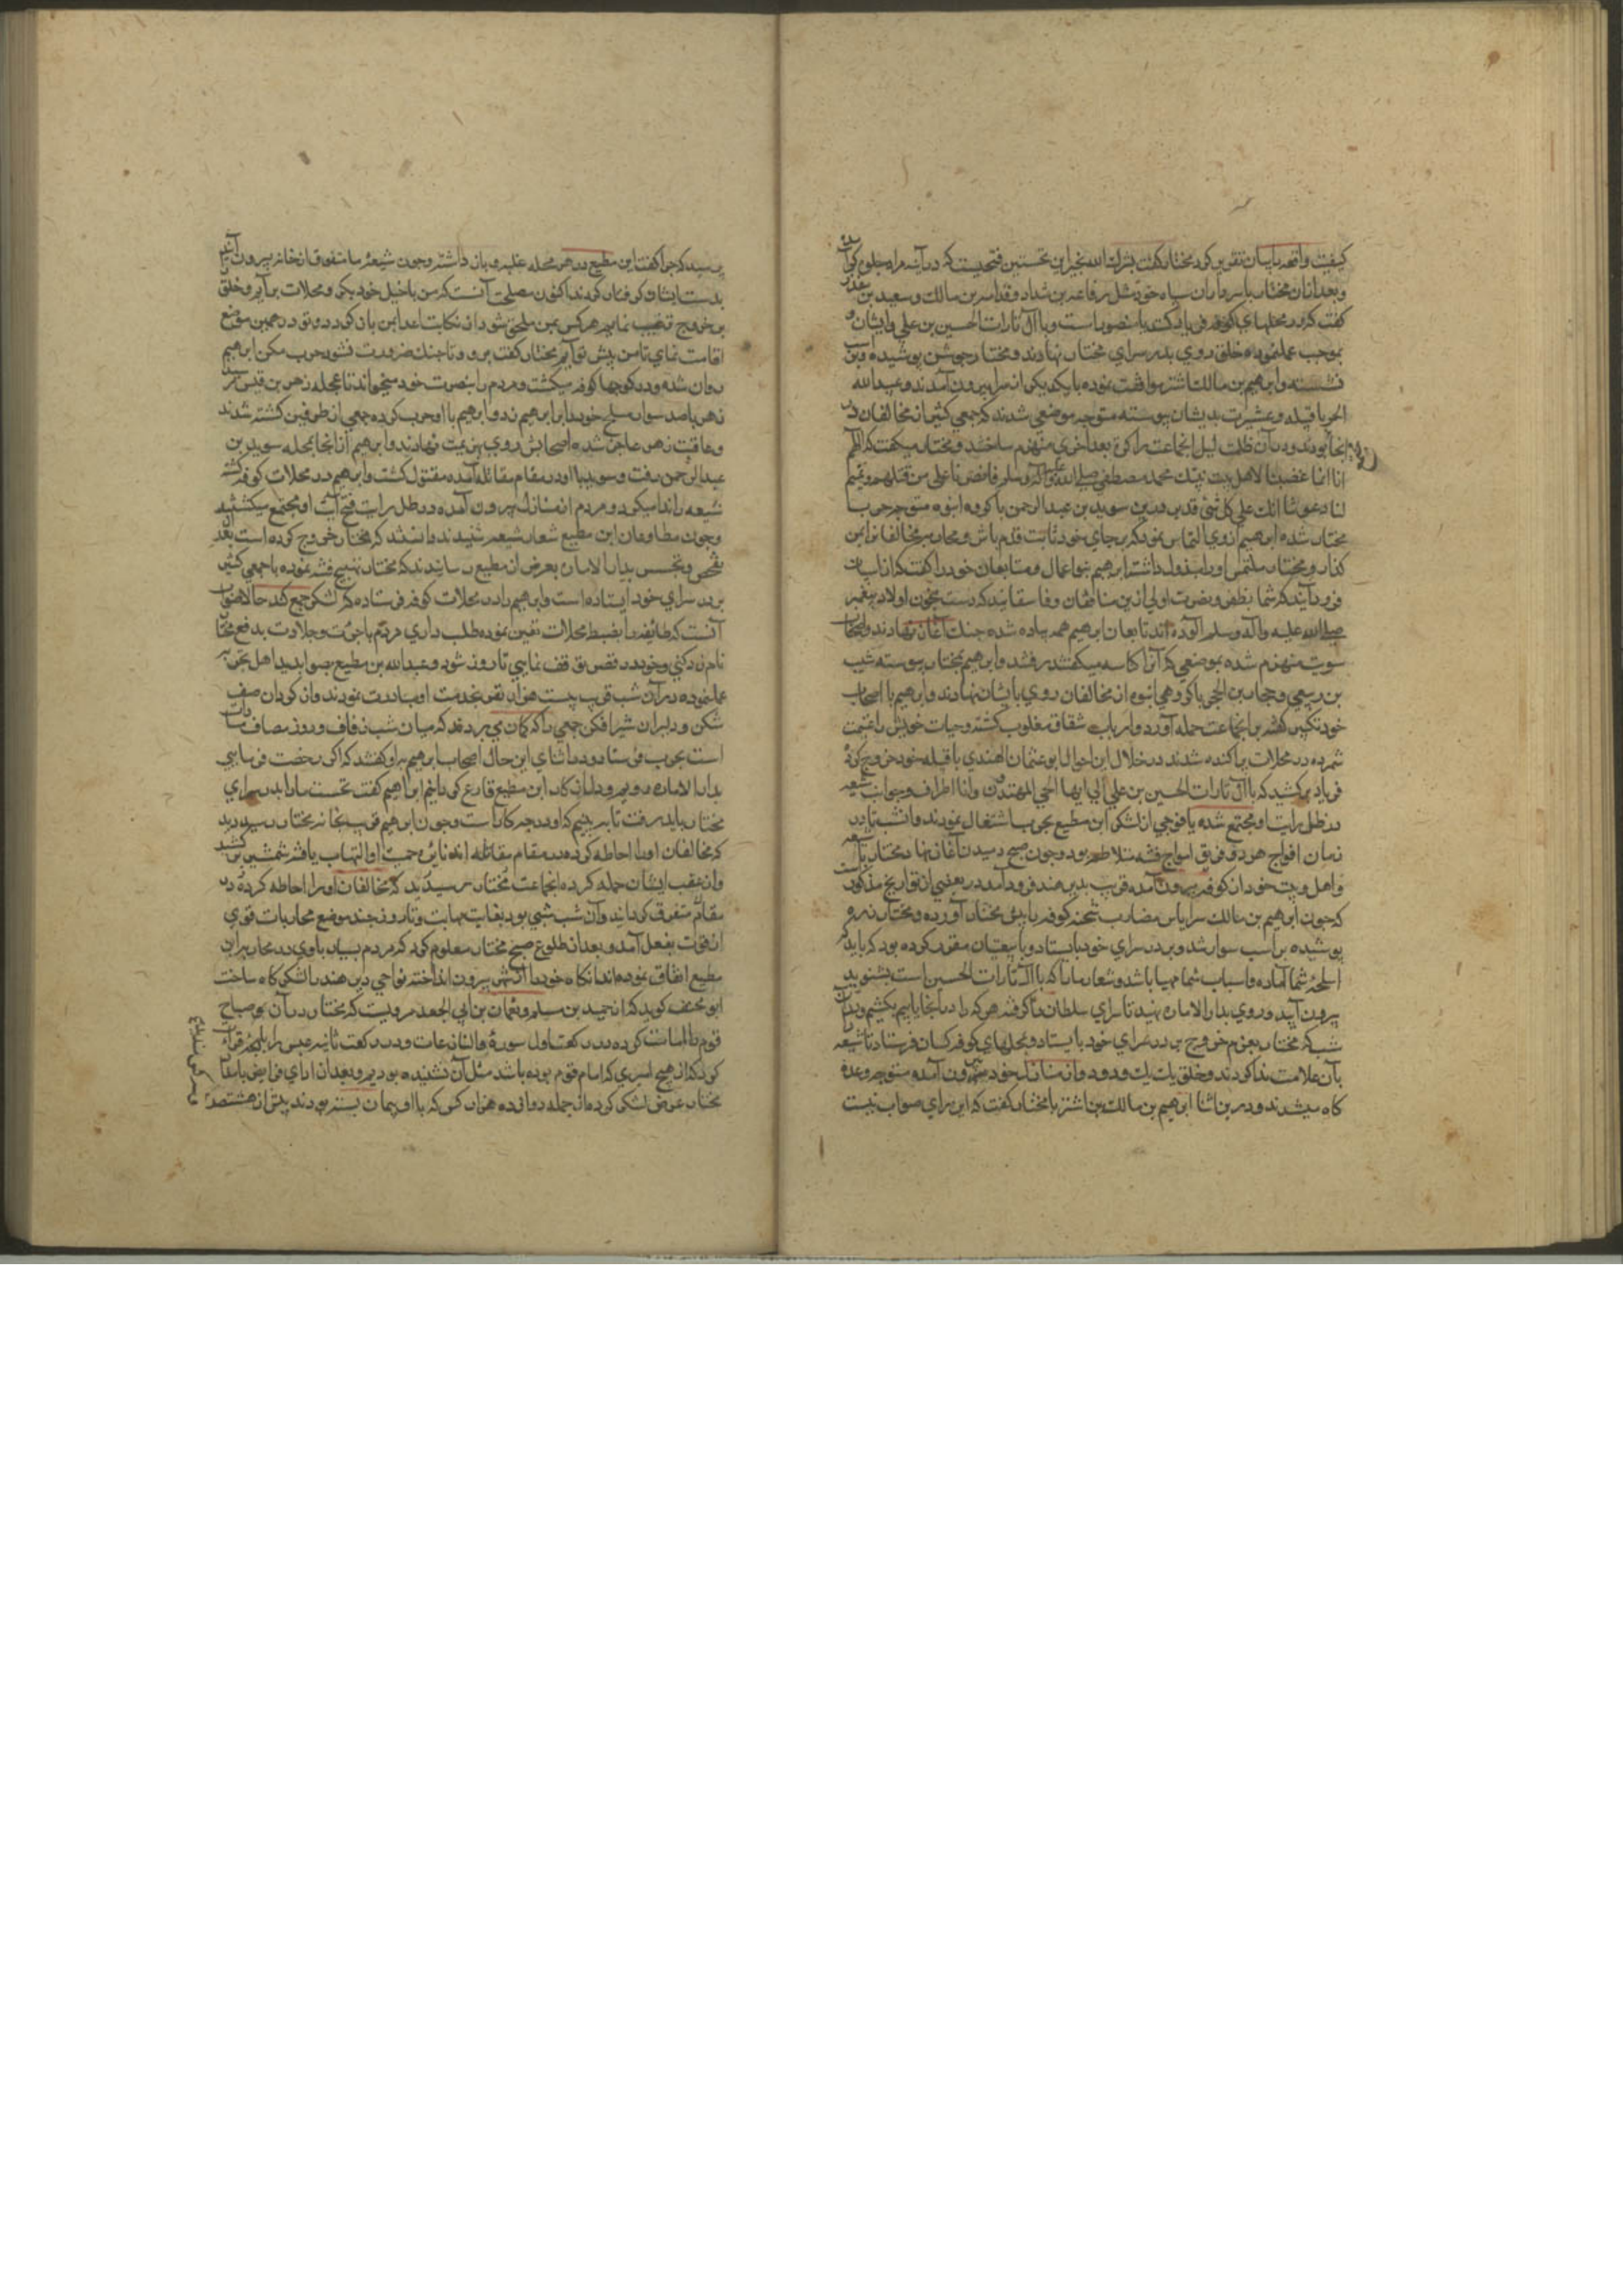 کیفیت واقعه با ایشان تقریر کرد مختار گفت بشرک الله بخیر این نخستین فتحیست که در آینه مراد جلوه کرده
و بعد از آن مختار با سرداران سپاه خود مثل رفاعه بن شداد و قدامه بن مالک و سعید بن منقذ
گفت که در محلهای کوفه فریاد کنند یا منصور امت و یا آل ثارات الحسین بن علی و ایشان
بموجب عمل نموده خلق روی بدر سرای مختار نهادند و مختار جوشن پوشیده
نشستند و ابرهیم بن مالک اشتر موافقت نموده با یکدیگر از سرا بیرون آمدند و عبید الله
الحر با قبیله و عشیرت بدیشان پیوسته متوجه موضعی شدند که جمعی کثیر از مخالفان در
آنجا بودند و در آن ظلمت لیل آنجماعت را بعد اخری منهزم ساختند و مختار میگفت که اللهم
انا انما غضبنا لاهل بیت نبیک محمد مصطفی صلی الله علیه وآله وسلم فانصرنا علی من قتلهم و تمم
لنا دعوتنا انک علی کل شئ قدیر سوید بن عبد الرحمن با گروه انبوه متوجه حرب
مختار شده ابرهیم از وی التماس نمود که بر جای خود ثابت قدم باش و محاربه مخالفان بمن
گذار و مختار ملتمس او را مبذول داشت ابرهیم متابعان خود را گفت که از اسپان
فرود آیید که شما بظفر و نصرت اولی از بن منافقان و فاسقانید که دست بخون اولاد پیغمبر
صلی الله علیه وآله وسلم آلوده اند تابعان ابرهیم همه پیاده شده جنگ آغاز نهادند و اصحاب
سوید منهزم شده بموضعی که آنرا کناسه میگفتند رفتند و ابرهیم بمختار پیوسته شبث
بن ربعی و حجار بن الحجر با گروهی انبوه از مخالفان روی بایشان نهادند و ابرهیم با اصحاب
خود تکبیر گفته بر آنجماعت حمله آورد و ارباب شقاق مغلوب گشته و حیات خویش را غنیمت
شمرده در محلات پراکنده شدند در خلال این احوال ابو عثمان الهندی با قبیله خود خروج کرد
فریاد برکشید که یا آل ثارات الحسین بن علی الی ایها الحی المهتدون و از اطراف و جوانب شیعه
در ظل رایت او مجتمع شده با فوجی از لشکر ابن مطیع بحرب اشتغال نمودند و آنشب تا در
زمان افواج هر دو فریق امواج فتنه متلاطم بود و چون صبح دمیدن آغاز نهاد مختار با شیعه
و اهل بیت خود از کوفه بیرون آمده قریب بدیر هند فرود آمد در بعضی از تواریخ مذکور است
که چون ابرهیم بن مالک سر ایاس مضارب شحنه کوفه را پیش مختار آورده و مختار زره
پوشیده بر اسب سوار شد و بر در سرای خود بایستاد و با شیعیان مقرر کرده بود که باید که
اسلحه شما آماده و اسباب شما مهیا باشد و شعار ما را که یا آل ثارات الحسین است بشنوید
بیرون آیید و روی بدار الاماره نهید تا سرای سلطان را گرفته هر که را در آنجا یابیم بکشیم و در آن
شب که مختار بعزم خروج بر در سرای خود بایستاد و بمحلهای کوفه کسان فرستاد تا شیعه
بآن علامت ندا کردند و خلق یک یک و دو دو از منازل خود بیرون آمده متوجه وعده
گاه میشدند و در بن اثنا ابرهیم بن مالک بن اشتر با مختار گفت که این رای صواب نیست
پرسید که چرا گفت ابن مطیع در هر محله علیه و بان داشته و چون شیعه ما متفرق از خانه بیرون آیند
بدست ایشان گرفتار گردند اکنون مصلحت آنست که من با خیل خود بگرد محلات برآیم و خلق
بر خروج ترغیب نمایم هر کس بمن ملحق شود از نکایت اعدا ایمن باز گردد و تو در همین موضع
اقامت نمای تا من پیش تو آیم مختار گفت برو و تا جنگ ضرورت نشود حرب مکن ابرهیم
روان شده و در کوچها کوفه میگشت و مردم را بنصرت خود میخواند تا بمحله زهر بن قیس رسید
زهر با صد سوار مسلح خود را بر ابرهیم زد و ابرهیم با او حرب کرده جمعی از طرفین کشته شدند
و عاقبت زهر عاجز شده اصحابش روی بهزیمت نهادند و ابرهیم از آنجا بمحله سوید بن
عبد الرحمن رفت و سوید با او در مقام مقاتله آمده مقتول گشت و ابرهیم در محلات کوفه گشته
شیعه را ندا میکرد و مردم از منازل بیرون آمده در ظل رایت فتح آیت او مجتمع میگشتند
و چون مطاوعان ابن مطیع شعار شیعه شنیدند دانستند که مختار خروج کرده است بعد از
تفحص و تجسس بدار الاماره بعرض ابن مطیع رسانیدند که مختار تهییج فتنه نموده با جمعی کثیر
بر در سرای خود ایستاده است و ابرهیم را در محلات کوفه فرستاده که لشکر جمع کند حالا صواب
آنست که طایفه را بضبط محلات تعیین نموده طلب داری مردم با جرأت و جلادت بدفع مختار
نامزد کنی و خود در قصر توقف نمایی تا روز شود و عبد الله بن مطیع بصوابدید اهل تجربه
عمل نموده در آن شب قریب بیست هزار نفر بخدمت او مبادرت نمودند و از گردان صف
شکن و دلیران شیر افکن جمعی را که گمان می بردند که میان شب زفاف و روز مصاف مساوات
است بحرب فرستاد و در اثنای این حال اصحاب ابرهیم با او گفتند که اگر رخصت فرمایی
بدار الاماره رویم و دل از کار ابن مطیع فارغ گردانیم ابراهیم گفت نخست ما را بدر سرای
مختار باید رفت تا ببینیم که او در چه کار است و چون ابرهیم قریب بخانه مختار رسید دید
که مخالفان او را احاطه کرده در مقام مقاتله اند نایره حمیت او التهاب یافته شمشیر برکشید
و از عقب ایشان حمله کرده آنجماعت بمختار رسید دید که مخالفان او را احاطه کرده در
مقام متفرق گردانید و آن شب شبی بود بغایت مهابت و تا روز چند موضع محاربات قوی
از قوت بفعل آمد و بعد از طلوع صبح مختار معلوم کرد که مردم بسیار با وی در محاربه ابن
مطیع اتفاق نموده اند آنگاه خود را از شهر بیرون انداخته نواحی دیر هند را لشکر گاه ساخت
ابو مخنف گوید که از حمید بن مسلم و نعمان بن ابی الجعد مرویست که مختار در آن بوصباح
قوم را امامت کرده در رکعت اول سورۀ والنازعات و در رکعت ثانیه عبس را بلهجه قراءت
کرد که از هیچ امیری که امام قوم بوده باشد مثل آن نشنیده بودیم و بعد از ادای فرایض با مقا
مختار عرض لشکر کرده از جمله دوازده هزار کس که با او پیمان بسته بودند پیش از هشتصد